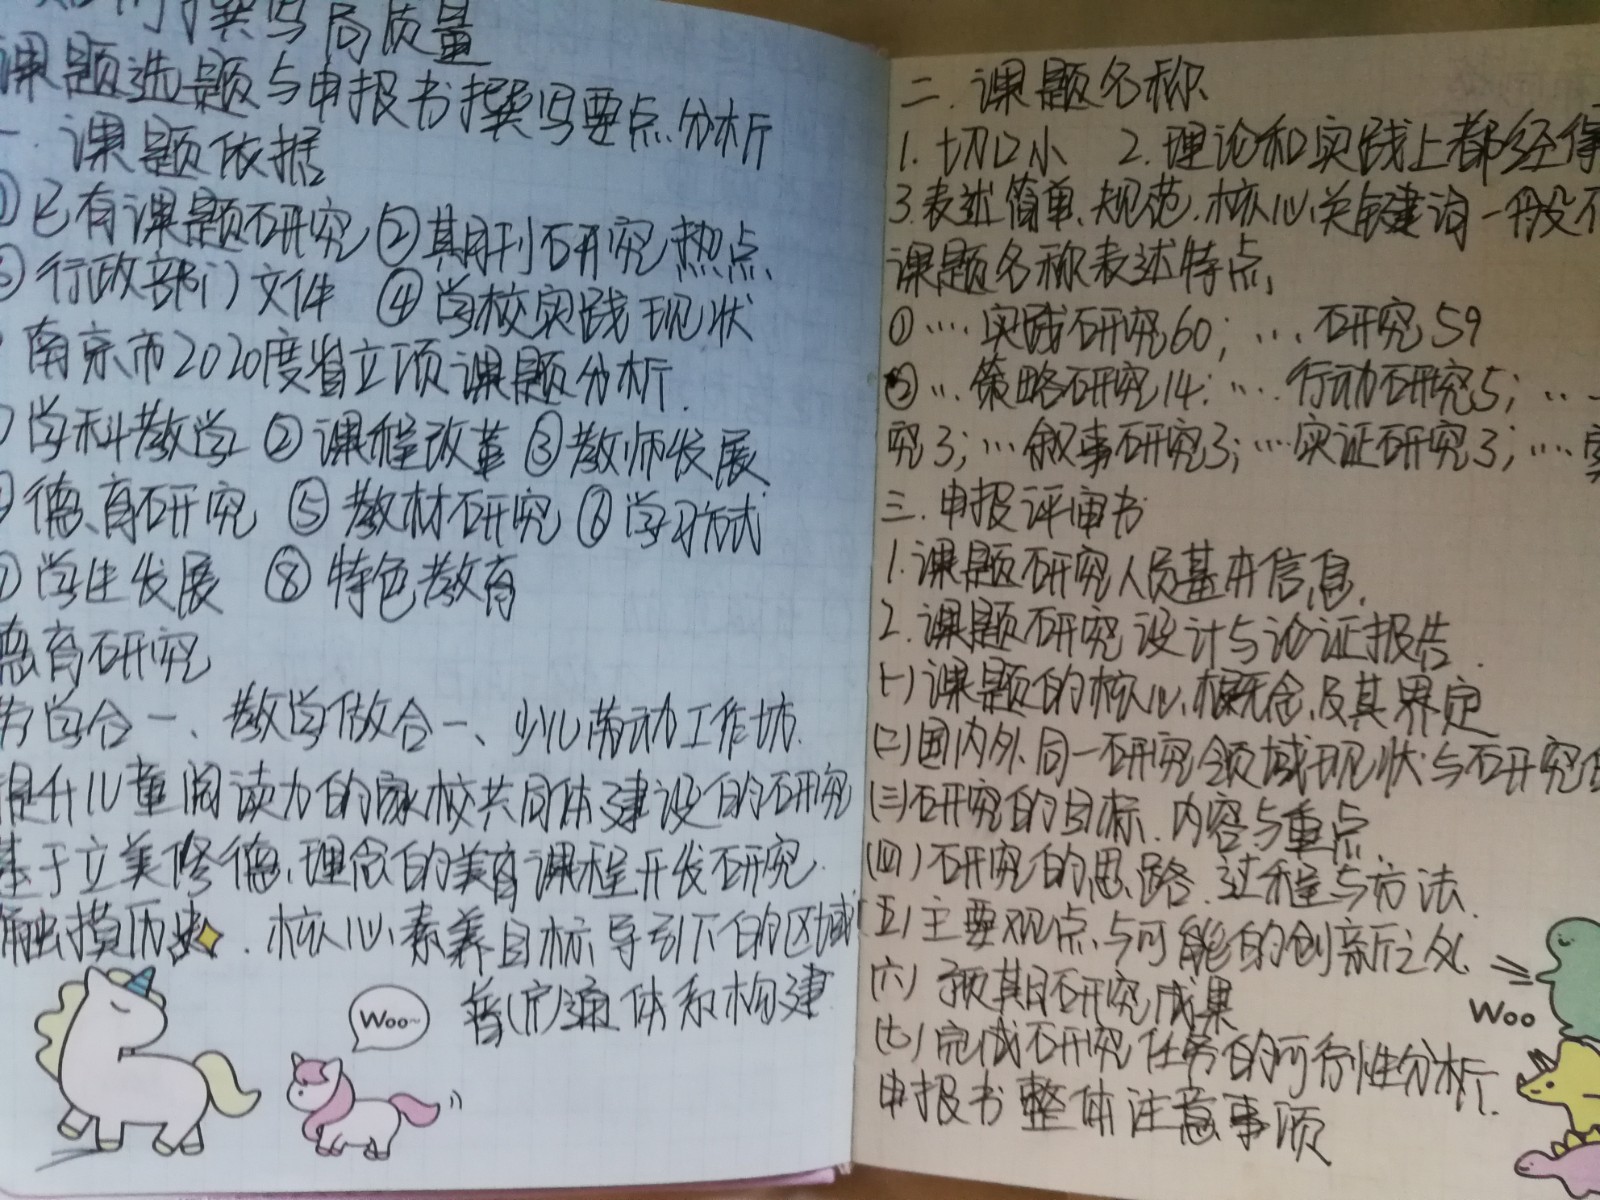 撰写高质量
课题选题与申报书撰写要点分析
一 课题依据
①已有课题研究 ②期刊研究热点
③行政部门文件 ④学校实践现状
南京市2020度省立项课题分析.
①学科教学 ②课程改革 ③教师发展
④德育研究 ⑤教材研究 ⑥学习方式
⑦学生发展 ⑧特色教育
德育研究
学合一、教学做合一、少儿劳动工作坊.
提升儿童阅读力的家校共同体建设的研究
基于立美修德理念的美育课程开发研究.
触摸历史. 核心素养目标导引下的区域
普(定)通体系构建
Woo~
二.课题名称
1.切口小 2.理论和实践上都经得
3.表述简单、规范.核心关键词一般不
课题名称表述特点,
①....实践研究60; ....研究59
②...策略研究14: ....行动研究5; ...
究3;...叙事研究3;...实证研究3;....
三.申报评审书
1.课题研究人员基本信息.
2.课题研究设计与论证报告.
(一)课题的核心概念及其界定
(二)国内外同一研究领域现状与研究的
(三)研究的目标.内容与重点.
(四)研究的思路.过程与方法.
(五)主要观点与可能的创新之处.
(六) 预期研究成果
(七)完成研究任务的可行性分析.
申报书整体注意事项
Woo